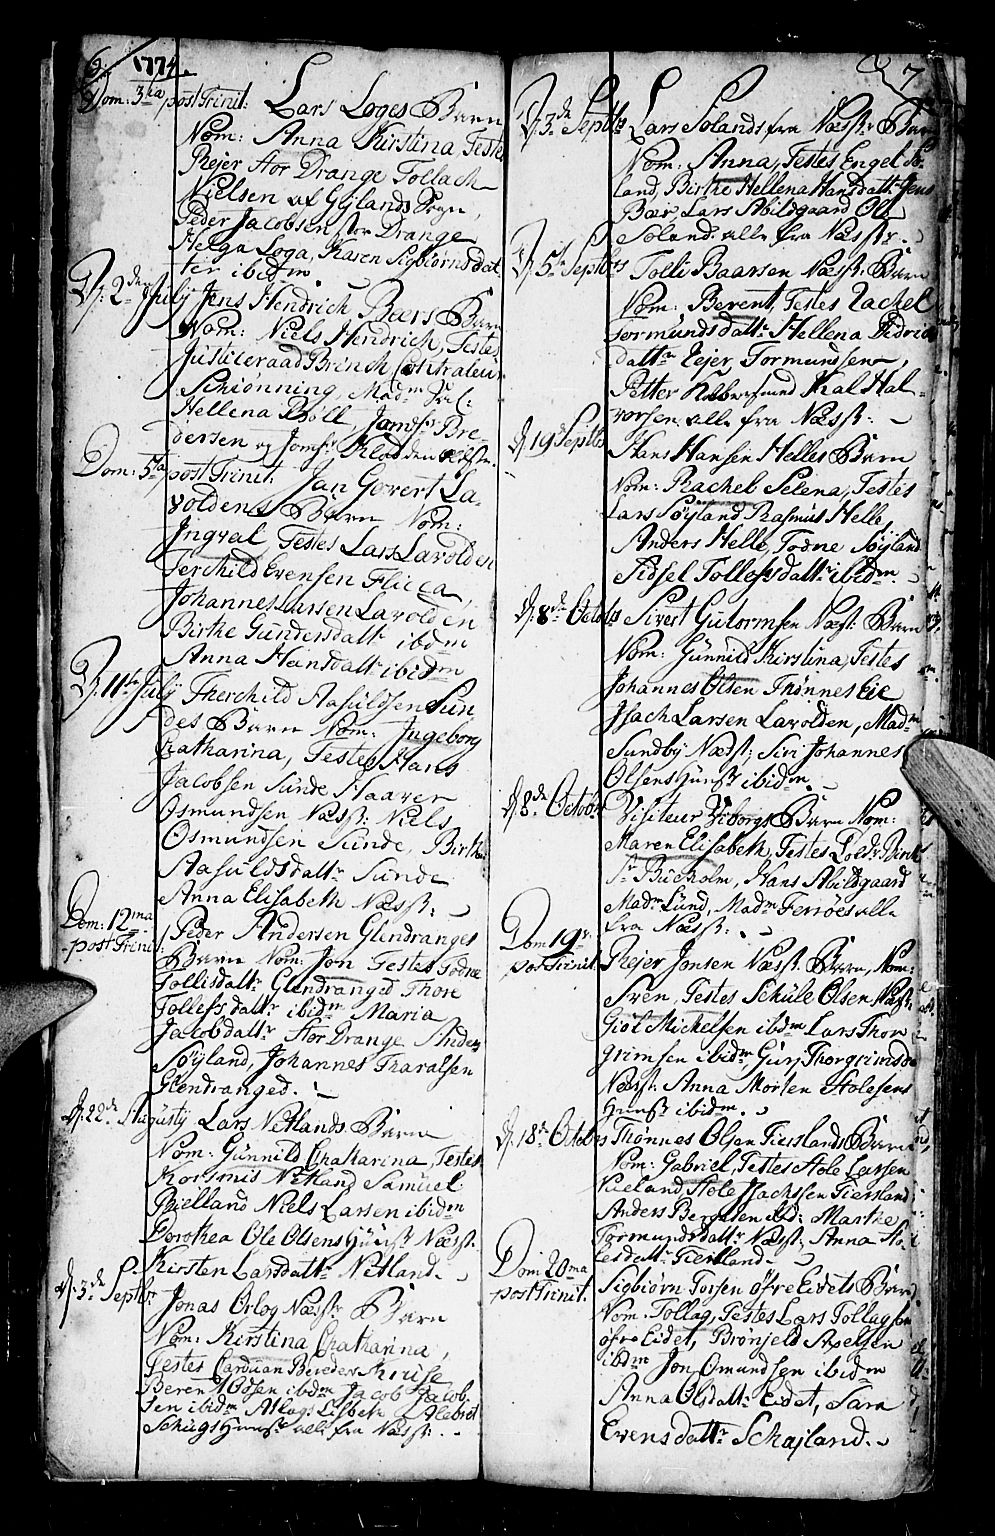 6. 1774.
Dom: 3tia post Trinit: Lars Loges Barn
Nom: Anna Kirstina, Testes
Rejer Stor Drange Tollach
Nielsen af Gylands Sogn,
Peder Jacobsen Stor Drange,
Helga Loga, Karen Sigbiørnsdat
ter ibidm
D. 2den July Jens Hendrich Beers Barn
Nom: Niels Hendrich, Testes
Justiceraad Brinch, Controleur
Schiønning, Madm Sal:
Hellena Bøll, Jomfr Pe-
dersen og Jomfr Klod den
Dom: 5ta post Trinit. Jan Govert La-
voldens Barn Nom:
Ingval, Testes Lars Lavolden
Terchild Evensen Flicca,
Johannes Larsen Lavolden
Birthe Gundersdatt ibidm
Anna Hansdatt: ibidm
D. 11te July Therchild Aasuldsen Sun
des Barn Nom: Ingeborg
Chatharina, Testes Hans
Jacobsen Sunde Haaver
Osmundsen Næss: Niels
Osmundsen Sunde, Birthe
Aasuldsdattr Sunde
Anna Elisabeth Næss:
Dom: 12ma
post Trinit: Peder Andersen Glendranges
Barn Nom: Jon Testes Todne
Tollisdattr Glendranged Thore
Tollefsdattr ibidm Maria
Jacobdattr Stor Drange Anders
Søyland, Johannes Tharalsen
Glendranged.
D. 22de Augusty Lars Netlands Barn
Nom: Gunnild Chatharina, Testes
Korsonis Netland Samuel
Bielland Niels Larsen ibidm
Dorothea Ole Olsens Huusr Næss:
Kirsten Larsdattr Netland.
D. 3de Septbr Jonas Orlog Næssr Barn
Nom: Kirstina Chatharina,
Testes Carduan Bereder Kruse
Beren Olssen ibidm Jacob Jacob
sen ibidm Aslag Lisbeth Alebret
Schugs Huusr alle fra Næss:
7
D. 3de Septbr Lars Solands fra Næssr Barn
Nom: Anna, Testes Engel So-
land, Birthe Hellena Hansdatt: Jens
Boær, Lars Abildgaard Ole
Soland alle fra Næssr.
D. 5te Septbrs Tolli Baarsen Næss: Barn
Nom: Berent, Testes Rachel
Tormundsdattr Hellena Didrics
dattr Eejer Tormundsen,
Petter Kal Hal-
vorsen alle fra Næss:
D. 19de Septbr Hans Hansen Helles Barn
Nom: Rachel Selena, Testes
Lars Søyland Rasmus Helle,
Anders Helle, Todne Søyland
Sidsel Tollefsdattr ibidm
D. 8de Octobr Sivert Gutormsen Næss: Barn
Nom: Gunnild Kirstina, Testes
Johannes Olsen Thønnes Eie
Isach Larsen Lavolden, Madm
Sundby Næss: Siri Johannes
Olsens Huusr ibidm.
D. 8de Octobr Visiteur Viborgs Barn Nom:
Maren Elisabeth, Testes Told Brink
Sr Bucholm, Hans Abildgaard
Madm Lund, Madm Ferröes alle
fra Næss:
Dom 19de
post Trinit. Rejer Jonsen Næss: Barn, Nom:
Sven, Testes Schule Olsen Næss:
Giøl Mickelsen ibidm Lars Thor
grimsen ibidm Guri Thorgrimsdr
Næss: Anna Morten Stolesens
Huusr ibidm.
D. 18de Octobrs Thønnes Olsen Fierslands Barn
Nom: Gabriel, Testes Stole Larsen
Kueland, Stole Isachsen Fiersland
Anders Berntsen ibid: Marthe
Tormundsdattr Næss: Anna Sto-
lesdattr Fiersland
Dom 20ma
post Trinit. Sigbiørn Torsen Øfre Eidets Barn
Nom: Tollag, Testes Lars Tollagsen
øfre Eidet, Brønjeld Axelsen
ibidm Jon Omundsen ibidm
Anna Olsdattr Eidet, Sara
Evensdattr Schajland.